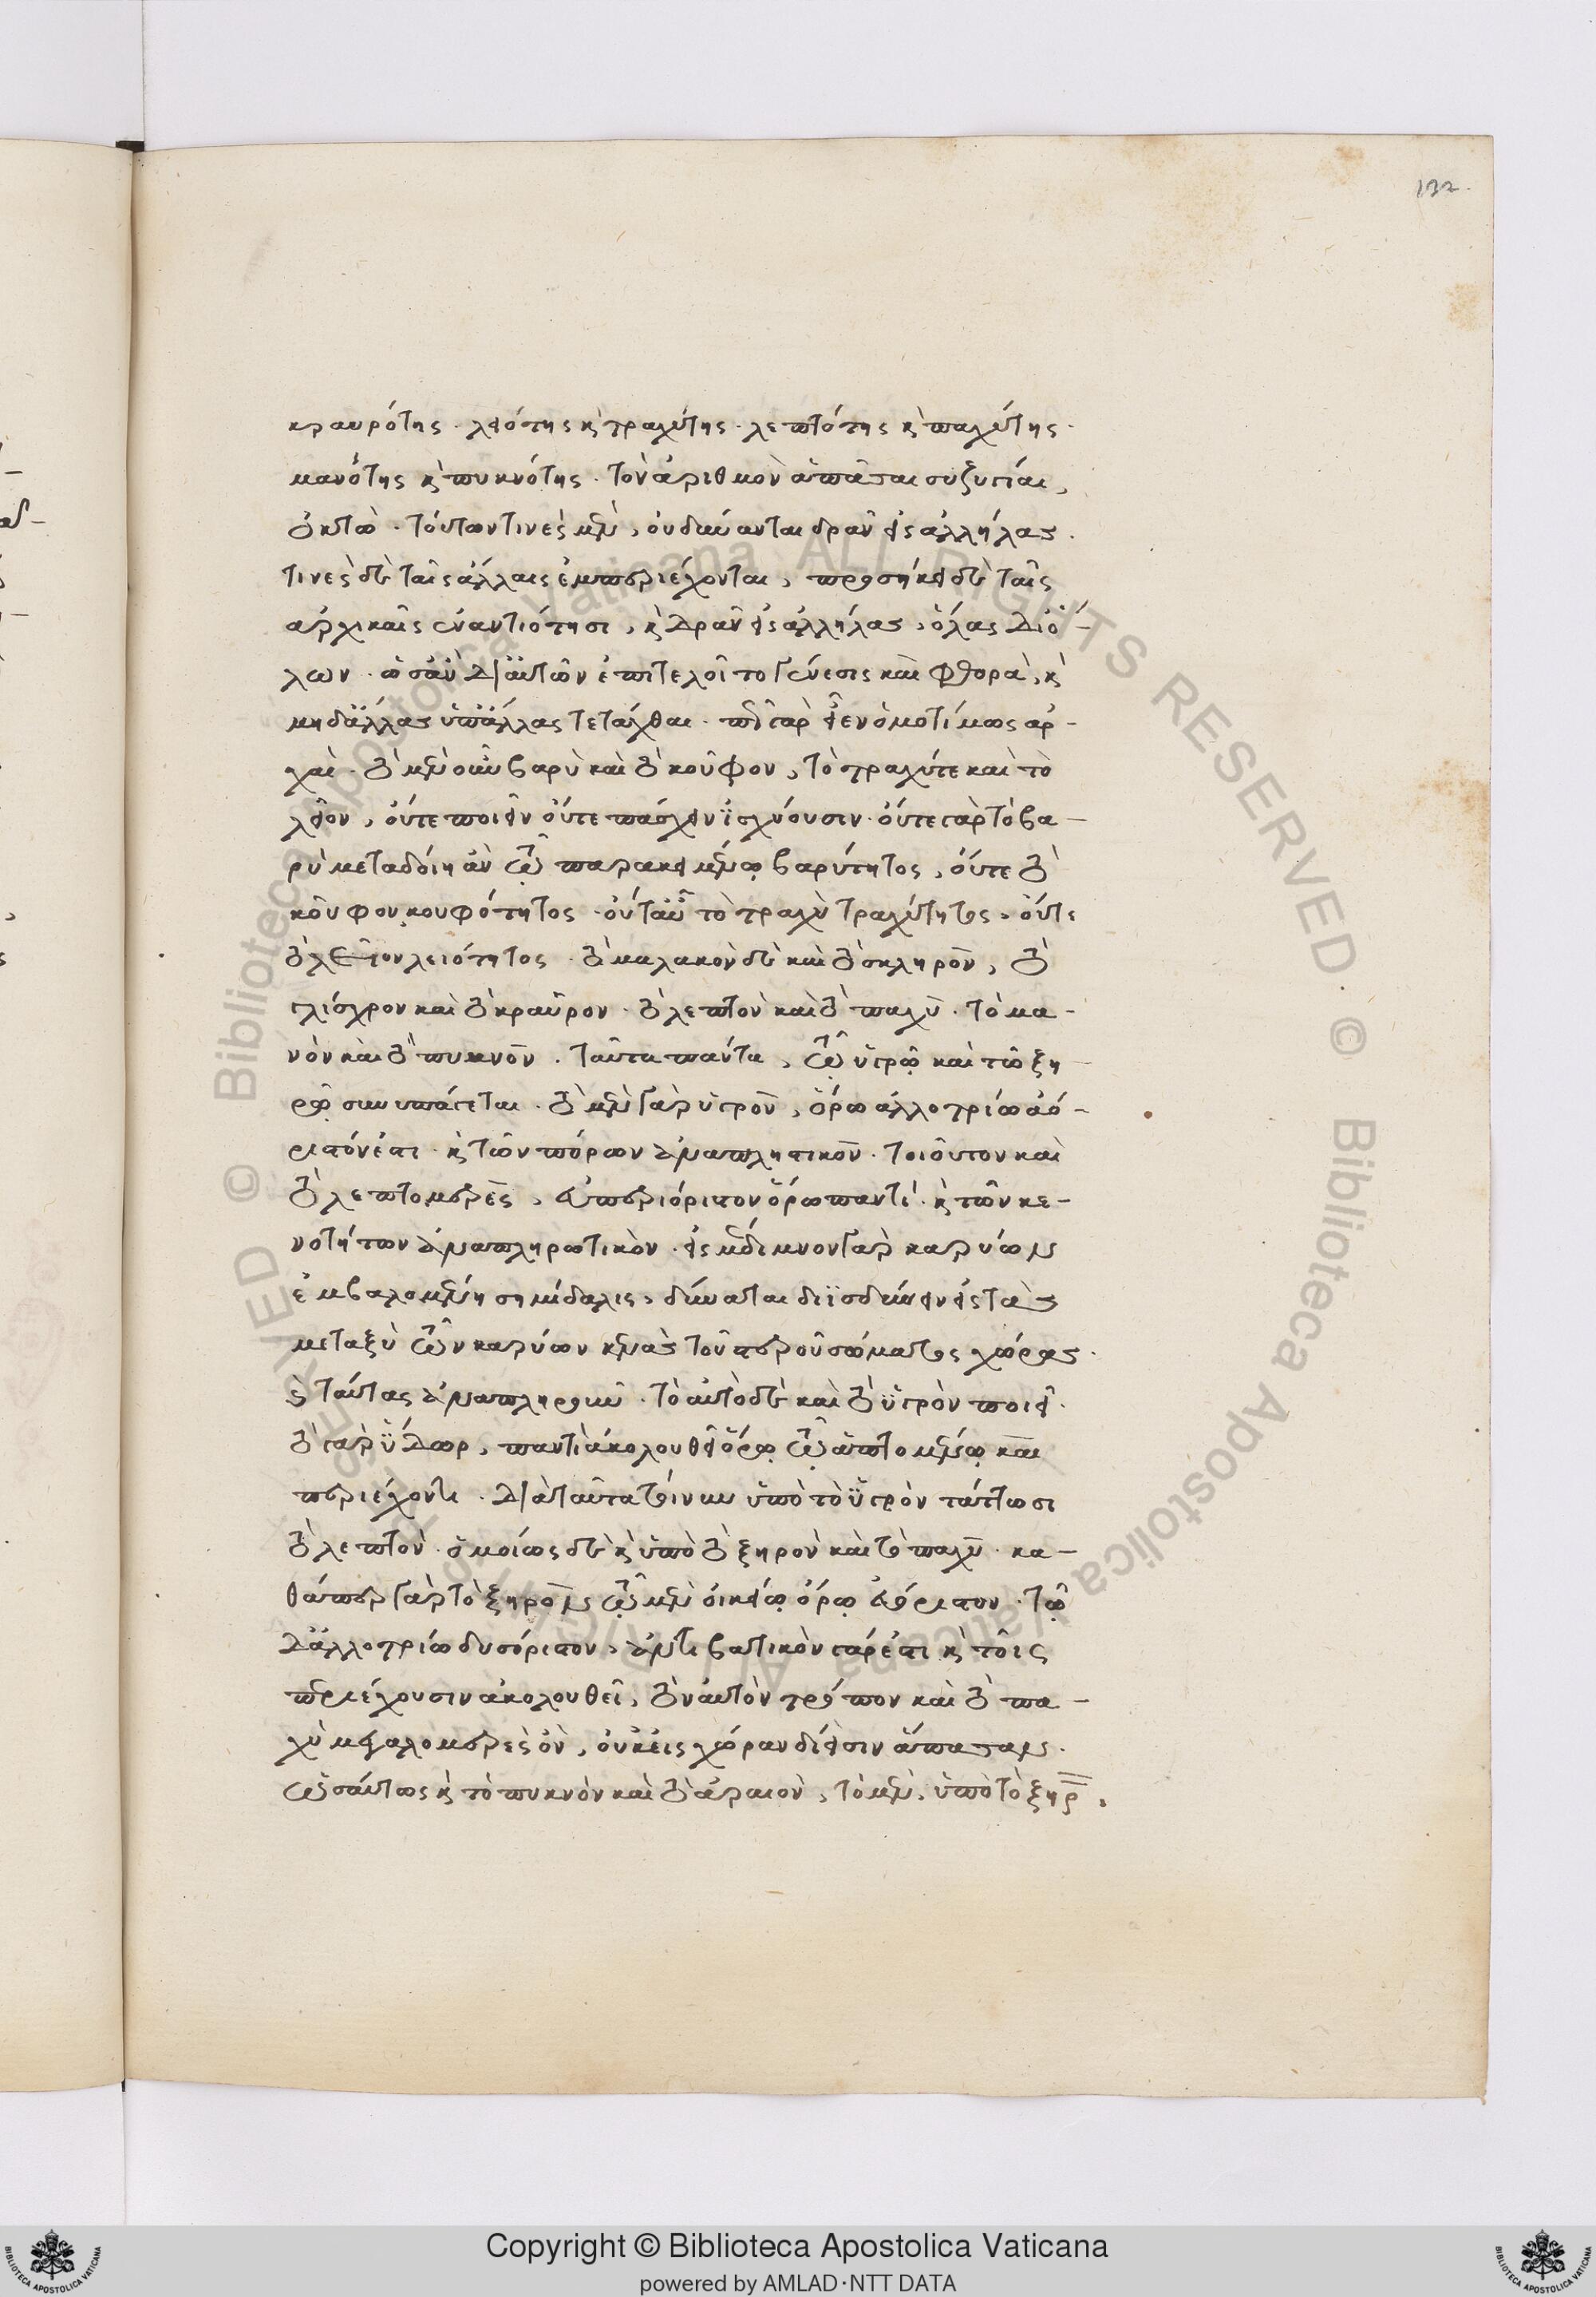 132.
κραυρότης· λειότης κ τραχύτης· λεπτότης κ παχύτης·
μανότης κ πυκνότης· τὸν ἀριθμὸν ἁπᾶσαι συζυγίαι,
ὀκτώ· τούτων τινὲς μὲν, οὐ δύνανται δρᾶν εἰς ἀλλήλας·
τινὲς δὲ ταῖς ἄλλαις ἐμπεριέχονται, προσήκει δὲ ταῖς
ἀρχικαῖς ἐναντιότησι, κ δρᾶν εἰς ἀλλήλας, ὅλας δι' ὅ-
λων· ὡς ἂν δι' αὐτῶν ἐπιτελοῖτο γένεσις καὶ φθορὰ, κ
μηδ' ἄλλας ὑπ' ἄλλας τετάχθαι· γὰρ εἶεν ὁμοτίμως ἀρ-
χαί· τὸ μὲν οὖν βαρὺ καὶ τὸ κοῦφον, τὸ τραχύ τε καὶ τὸ
λεῖον, οὔτε ποιεῖν οὔτε πάσχειν ἰσχύουσιν· οὔτε γὰρ τὸ βα-
ρὺ μεταδοίη ἂν τῷ παρακειμένῳ βαρύτητος, οὔτε τὸ
κοῦφον κουφότητος· οὔτ' αὖ τὸ τραχὺ τραχύτητος, οὔτε
τὸ λεῖον λειότητος· τὸ μαλακὸν δὲ καὶ τὸ σκληρὸν, τὸ
γλίσχρον καὶ τὸ κραῦρον· τὸ λεπτὸν καὶ τὸ παχύ· τὸ μα-
νὸν καὶ τὸ πυκνὸν· ταῦτα πάντα, τῷ ὑγρῷ καὶ τῷ ξη
ρῷ συνυπάγεται· τὸ μὲν γὰρ ὑγρὸν, ὅρῳ ἀλλοτρίῳ εὐό-
ριστόν ἐστι· κ τῶν πόρων ἀναπληστικόν· τοιοῦτον καὶ
τὸ λεπτομερὲς, εὐπεριόριστον ὅρῳ παντί· κ τῶν κε-
νοτήτων ἀναπληρωτικὸν· εἰς μέδιμνον γὰρ καρύων
ἐμβαλομένη σημίδαλις, δύναται διϊσδύνειν εἰς τὰς
μεταξὺ τῶν καρύων κενὰς τοῦ στεροῦ σώματος χώρας·
κ ταύτας ἀναπληροῦν· τὸ αὐτὸ δὲ καὶ τὸ ὑγρὸν ποιεῖ·
τὸ γὰρ ὕδωρ, παντὶ ἀκολουθεῖ ὅρῳ τῷ ἁπτομένῳ καὶ
περιέχοντι· διὰ ταῦτα τοίνυν ὑπὸ τὸ ὑγρὸν τάττωσι
τὸ λεπτόν· ὁμοίως δὲ κ ὑπὸ τὸ ξηρὸν καὶ τὸ παχύ· κα-
θάπερ γὰρ τὸ ξηρὸν τῷ μὲν οἰκείῳ ὅρῳ εὐόριστον· τῷ
δ' ἀλλοτρίῳ δυσόριστον, ἀντιβατικὸν γάρ ἐστι κ τοῖς
περιέχουσιν ἀκολουθεῖ, τὸν αὐτὸν τρόπον καὶ τὸ πα-
χὺ μεγαλομερὲς ὂν, οὐκ εἰς χώραν δίεισιν ἅπασαν·
ὡσαύτως κ τὸ πυκνὸν καὶ τὸ ἀραιὸν, τὸ μὲν, ὑπὸ τὸ ξηρ.
Copyright © Biblioteca Apostolica Vaticana
powered by AMLAD·NTT DATA